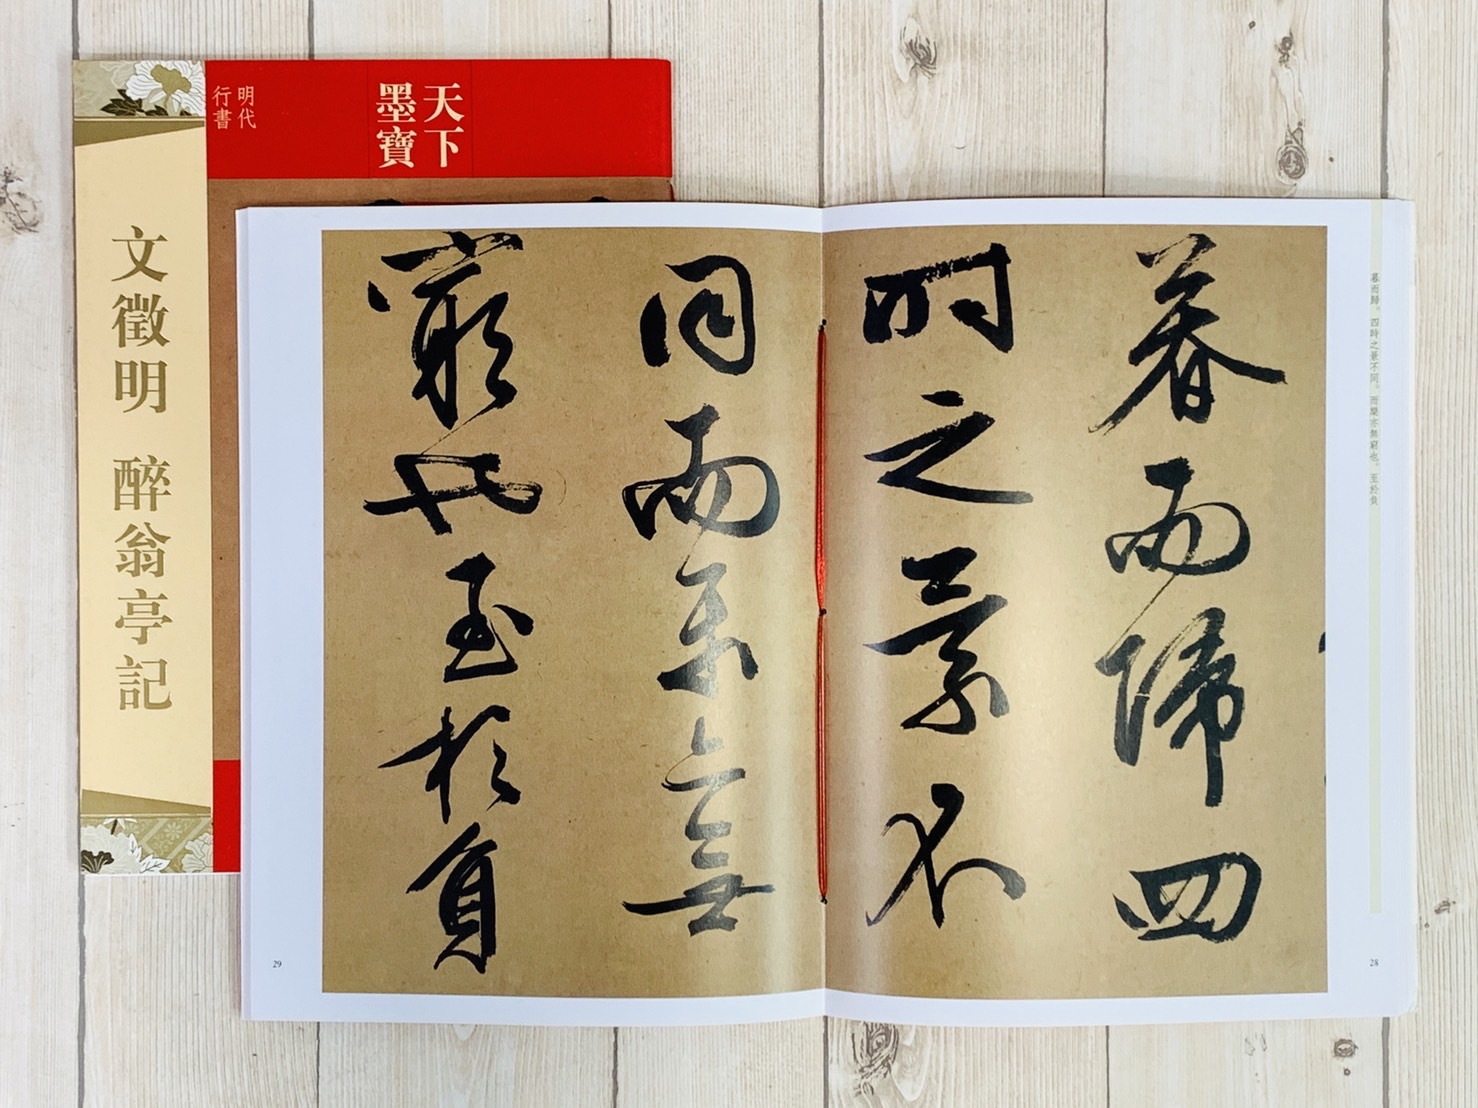 天下
墨寶
明代
行書
文徵明 醉翁亭記
暮而歸，四時之景不同，而樂亦無窮也。至於負
暮而歸四
時之景不
同而樂亦無
窮也至於負
28
29